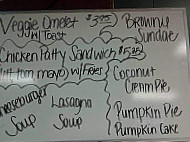 Veggie Omelet $3.95
w/ Toast
Brownie
Sundae
Chicken Patty Sandwich $5.25
tom mayo w/ Fries
Coconut
Creme Pie
Cheeseburger
Soup
Lasagna
Soup
Pumpkin Pie
Pumpkin Cake